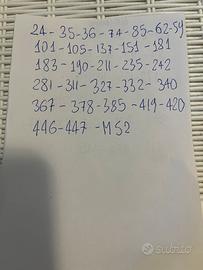 24-35-36-74-85-62-59
101-105-137-151-181
183-190-211-235-242
281-311-327-332-340
367-378-385-419-420
446-447-M52
subito